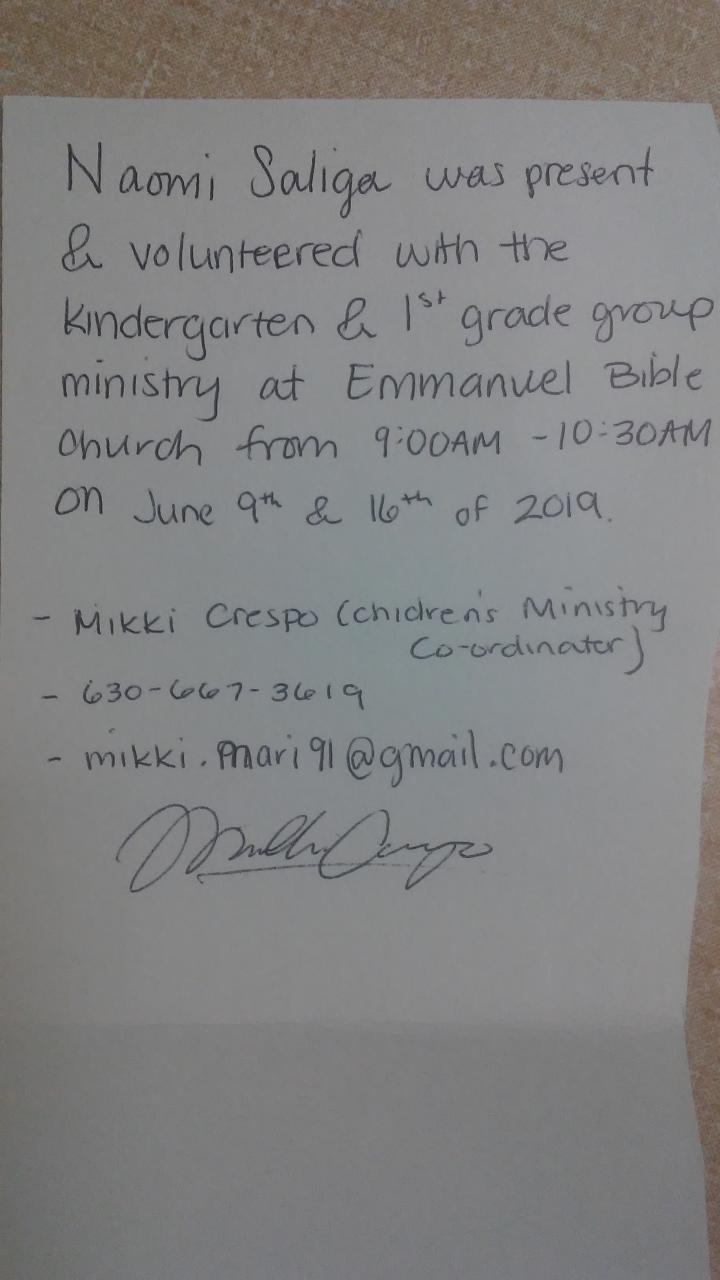 Naomi Saliga was present
& volunteered with the
kindergarten & 1st grade group
ministry at Emmanuel Bible
Church from 9:00AM - 10:30AM
on June 9th & 16th of 2019.
- Mikki Crespo (chidren's Ministry
Co-ordinator)
- 630-667-3619
- mikki.mari91@gmail.com
Mikki Crespo